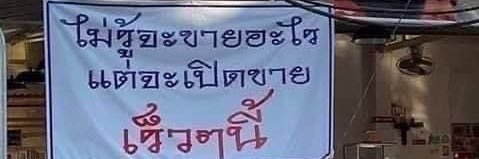 ไม่รู้จะขายอะไร
แต่จะเปิดขาย
เร็วๆนี้